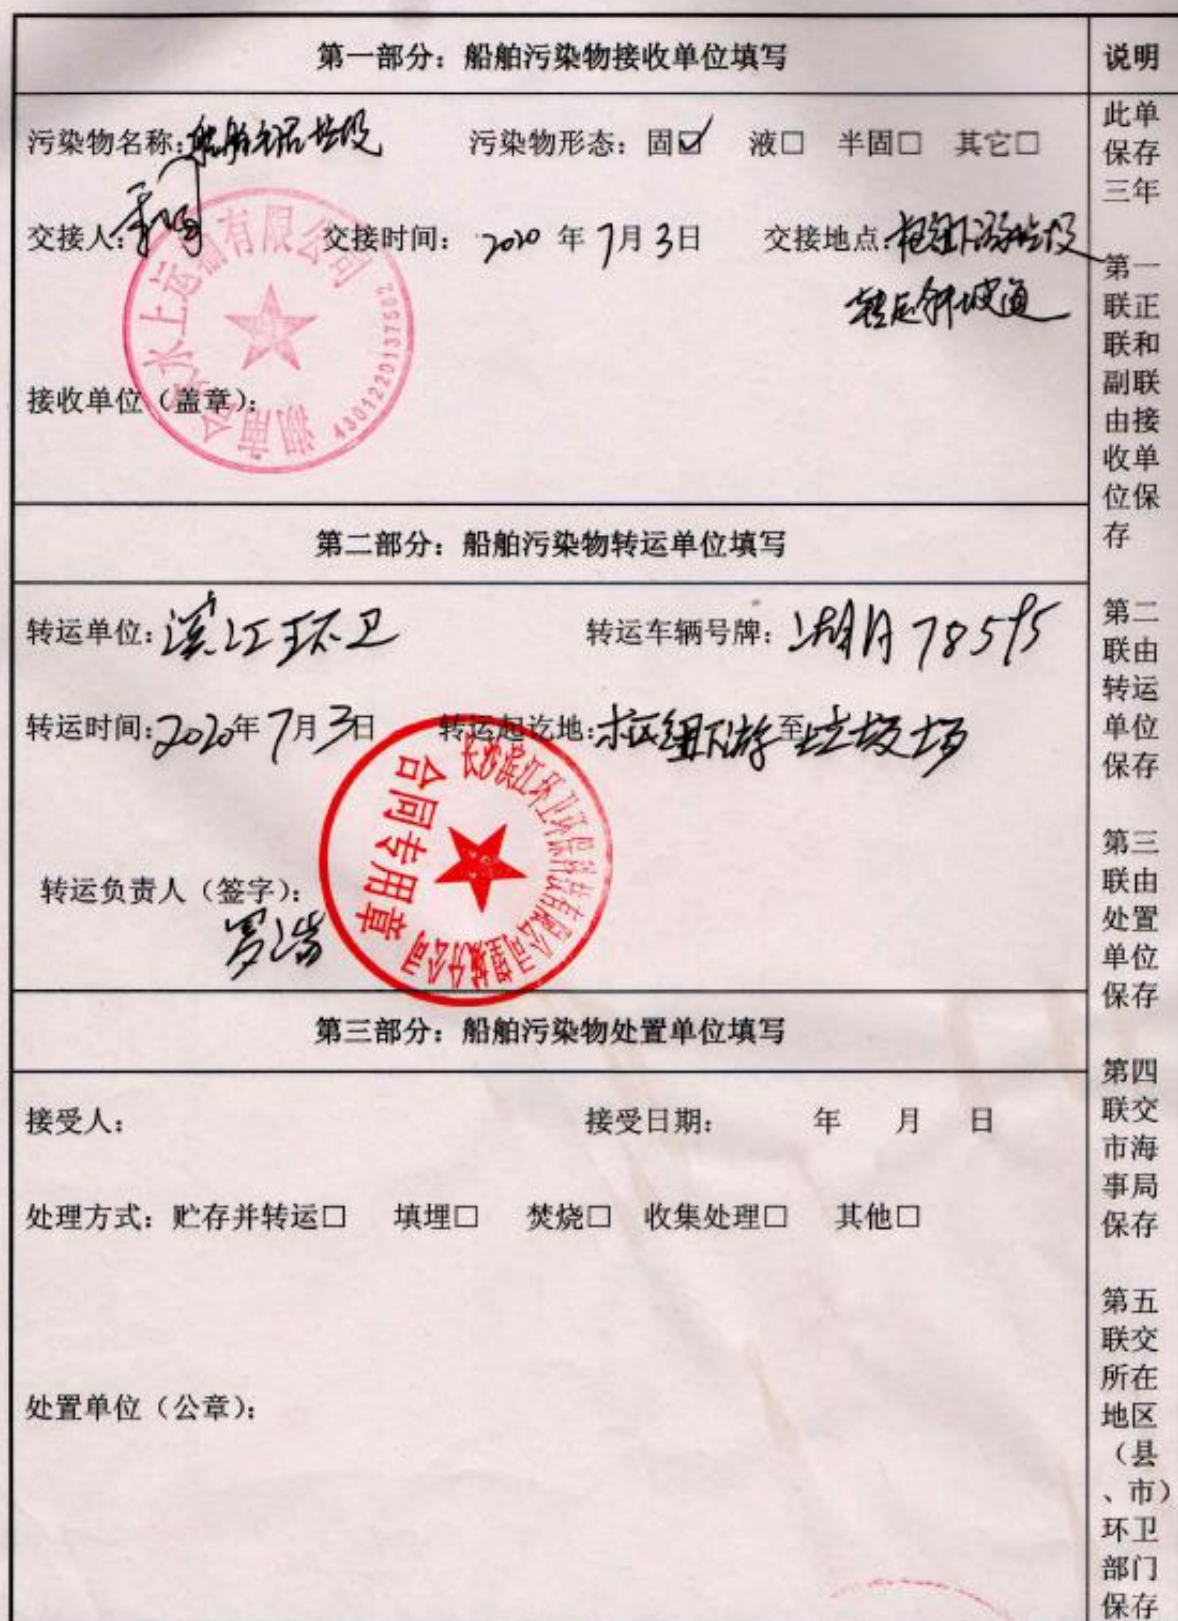 第一部分：船舶污染物接收单位填写
污染物名称：船舶生活垃圾 污染物形态：固☑ 液□ 半固□ 其它□
交接人： 交接时间：2020年7月3日 交接地点：枢纽下游垃圾
转运斜坡道
接收单位（盖章）：
水上运输有限公司
湖南
4301220137502
第二部分：船舶污染物转运单位填写
转运单位：滨江环卫 转运车辆号牌：湖A78595
转运时间：2020年7月3日 转运起讫地：枢纽下游至垃圾场
长沙滨江环卫环保科技有限公司望城分公司
合同专用章
转运负责人（签字）：
罗浩
第三部分：船舶污染物处置单位填写
接受人： 接受日期： 年 月 日
处理方式：贮存并转运□ 填埋□ 焚烧□ 收集处理□ 其他□
处置单位（公章）：
说明
此单
保存
三年
第一
联正
联和
副联
由接
收单
位保
存
第二
联由
转运
单位
保存
第三
联由
处置
单位
保存
第四
联交
市海
事局
保存
第五
联交
所在
地区
（县
、市）
环卫
部门
保存